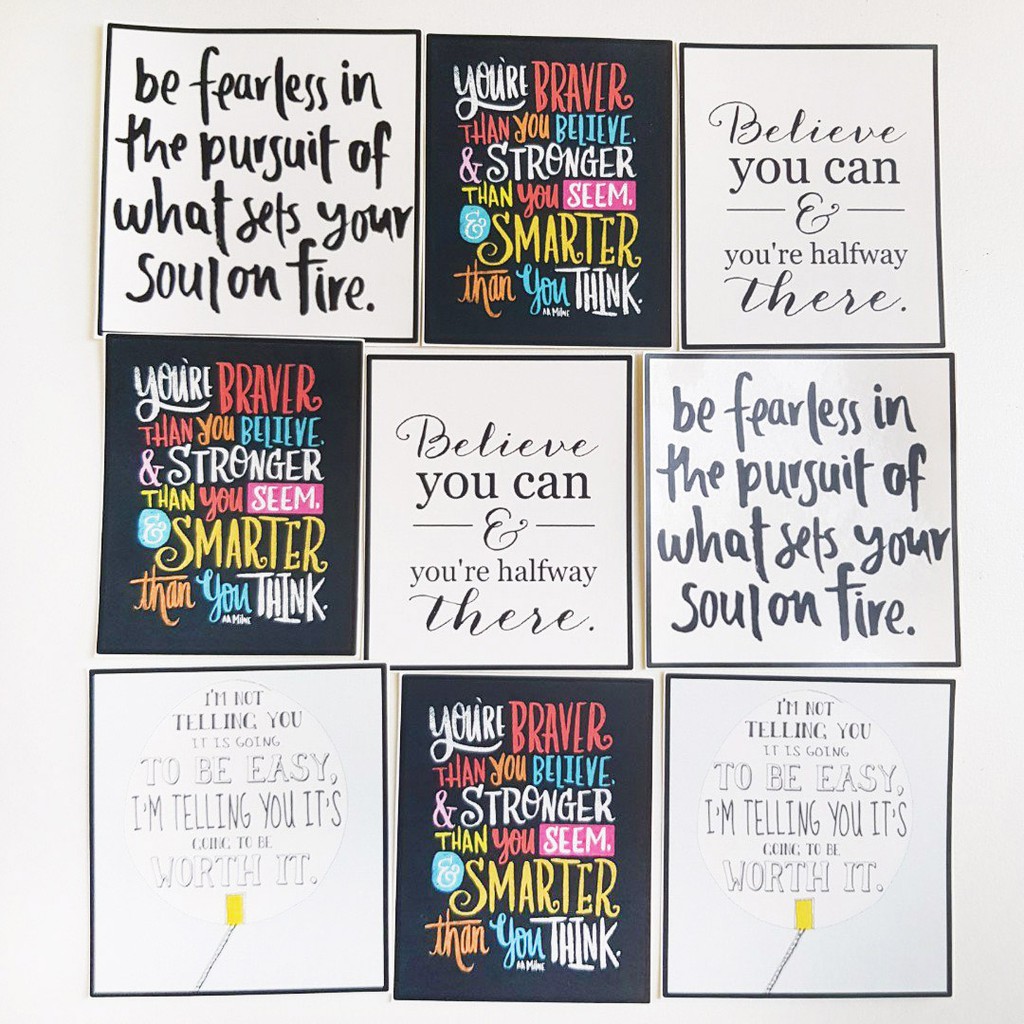 be fearless in
the pursuit of
what sets your
soul on fire.
YOU'RE BRAVER
THAN YOU BELIEVE,
& STRONGER
THAN you SEEM,
& SMARTER
than you THINK.
AA MILNE
Believe
you can
&
you're halfway
there.
YOU'RE BRAVER
THAN YOU BELIEVE,
& STRONGER
THAN you SEEM,
& SMARTER
than you THINK.
AA MILNE
Believe
you can
&
you're halfway
there.
be fearless in
the pursuit of
what sets your
soul on fire.
I'M NOT
TELLING YOU
IT IS GOING
TO BE EASY,
I'M TELLING YOU IT'S
GOING TO BE
WORTH IT.
YOU'RE BRAVER
THAN YOU BELIEVE,
& STRONGER
THAN you SEEM,
& SMARTER
than you THINK.
AA MILNE
I'M NOT
TELLING YOU
IT IS GOING
TO BE EASY,
I'M TELLING YOU IT'S
GOING TO BE
WORTH IT.